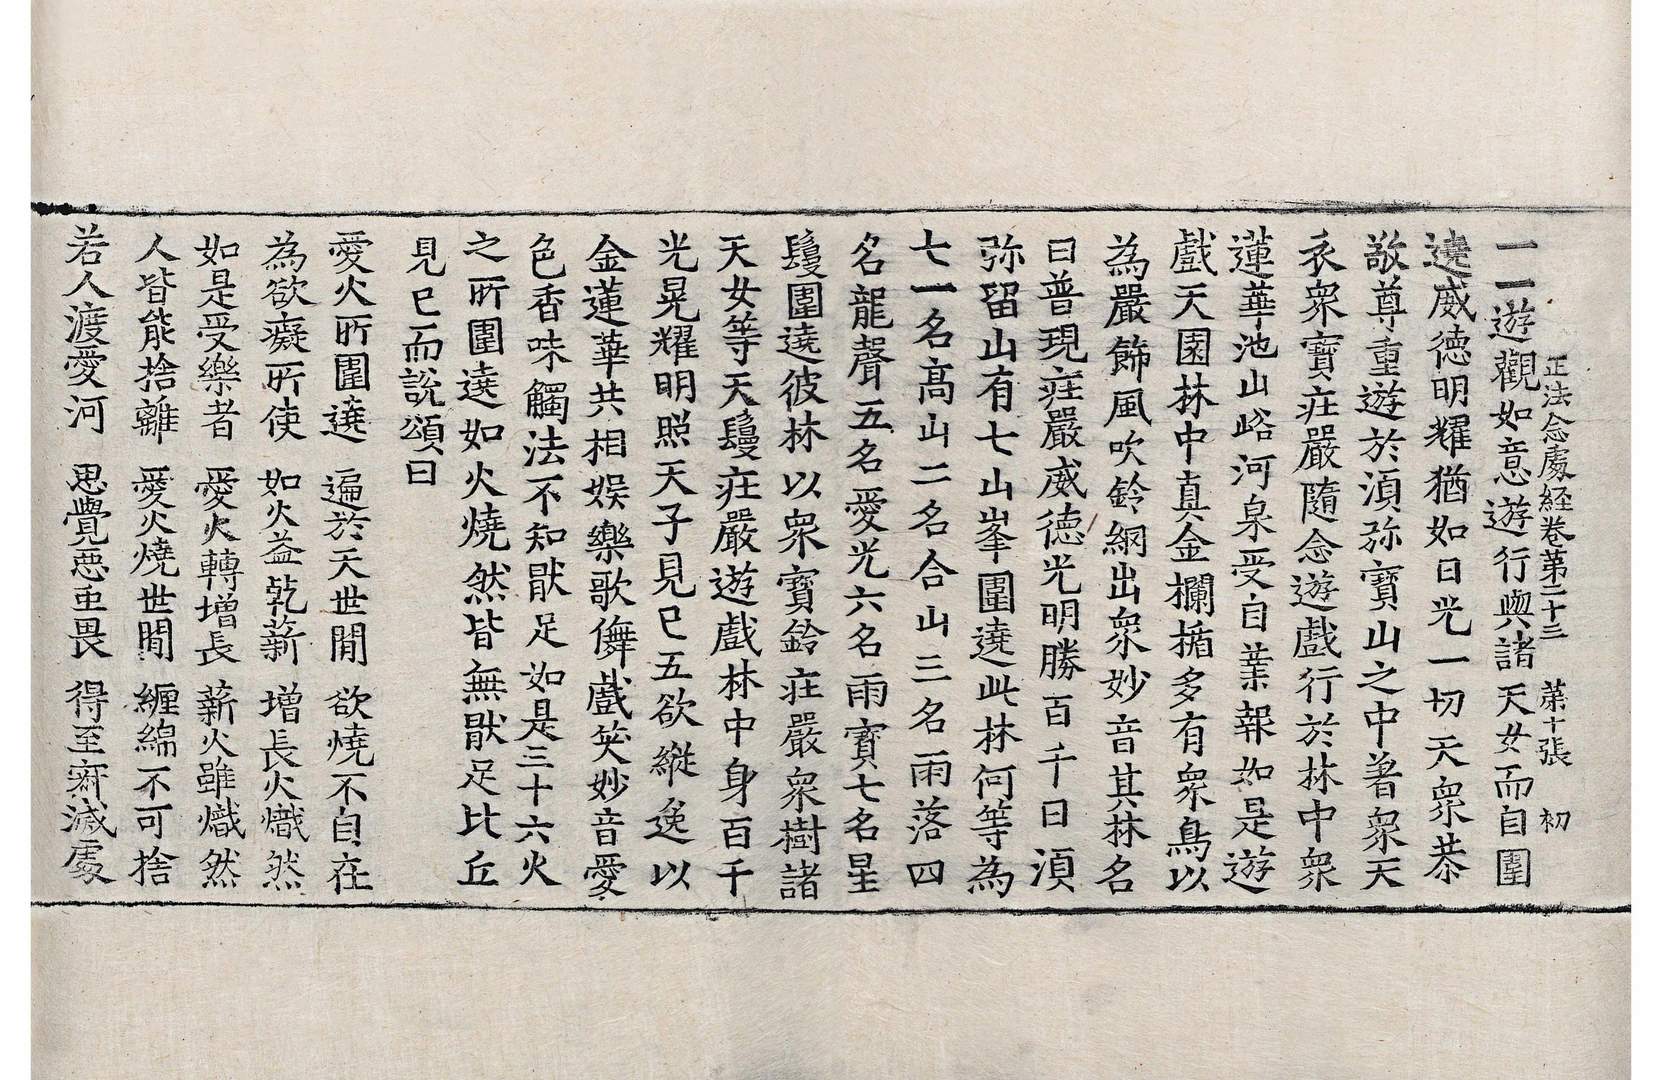 正法念處經卷第二十三　第十張　初
一一遊觀如意遊行與諸天女而自圍
遶威德明耀猶如日光一切天衆恭
敬尊重遊於湏弥寶山之中著衆天
衣衆寶莊嚴隨念遊戲行於林中衆
蓮華池山峪河泉受自業報如是遊
戲天園林中真金欄揗多有衆鳥以
為嚴飾風吹鈴網出衆妙音其林名
曰普現莊嚴威德光明勝百千日湏
弥留山有七山峯圍遶此林何等為
七一名高山二名合山三名雨落四
名龍聲五名愛光六名雨寶七名星
鬘圍遶彼林以衆寶鈴莊嚴衆樹諸
天女等天鬘莊嚴遊戲林中身百千
光晃耀明照天子見已五欲縱逸以
金蓮華共相娛樂歌儛戲笑妙音愛
色香味觸法不知猒足如是三十六火
之所圍遶如火燒然皆無猒足比丘
見已而說頌曰
愛火所圍遶　遍於天世間　欲燒不自在
為欲癡所使　如火益乾薪　增長火熾然
如是受樂者　愛火轉增長　薪火雖熾然
人皆能捨離　愛火燒世間　纏綿不可捨
若人渡愛河　思覺惡虫畏　得至寂滅處